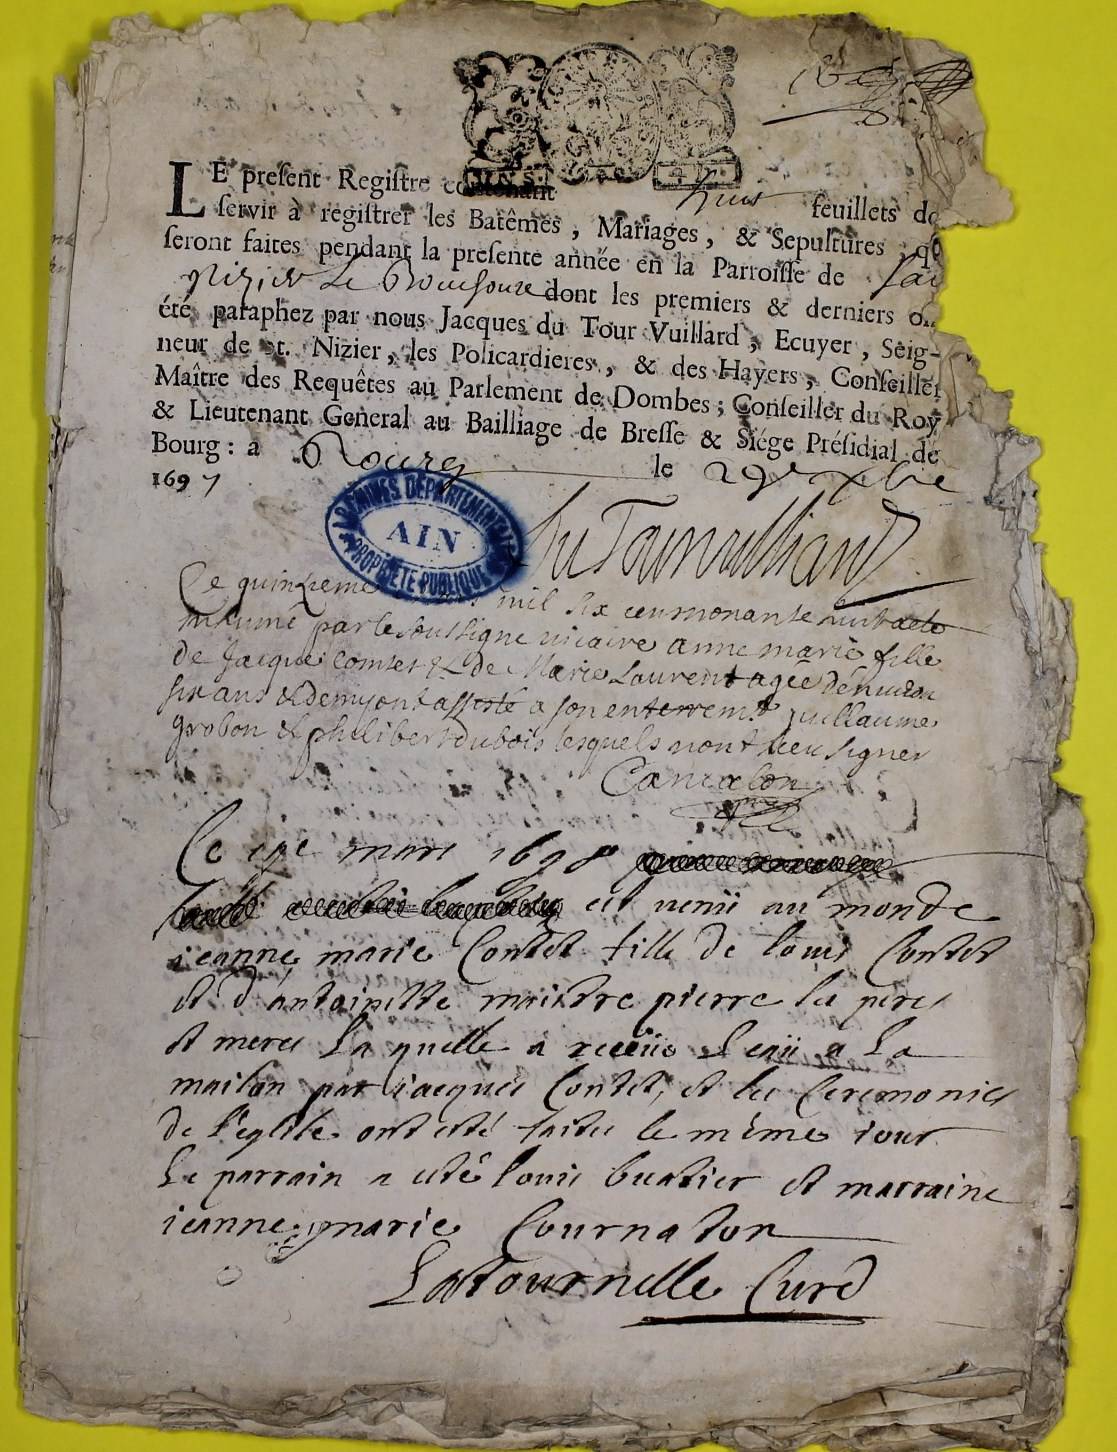 LE present Registre contenant huit feuillets de
servir à registrer les Batêmes, Mariages, & Sepultures qu
seront faites pendant la presente année en la Parroisse de Sai
Nizier Le Bouchoux dont les premiers & derniers on
été paraphez par nous Jacques du Tour Vuillard, Ecuyer, Seig-
neur de St. Nizier, les Policardieres, & des Hayers, Conseiller
Maître des Requêtes au Parlement de Dombes; Conseiller du Roy
& Lieutenant General au Bailliage de Bresse & Siége Présidial de
Bourg: a Bourg le 29e Xbre
1697
DuTourvuilliard
ARCHIVES DÉPARTEMENTALES
AIN
PROPRIÉTÉ PUBLIQUE
Ce quinzieme mil six cens nonante huit a ete
inhumé par le soussigne vicaire anne marie fille
de Jacque Contet & de Marie Laurent agée d'environ
six ans & demy ont assisté a son enterremt guillaume
grobon & philibert dubois lesquels n'ont sceu signer
Ce mars 1698
est venü au monde
ieanne marie Contet fille de louis Contet
et d'antoinette maistre pierre la peres
et meres La quelle a receüe l'eaü a La
maison par iacques Contet, et les Ceremonies
de l'eglise ont esté faites le même iour
Le parrain a esté louis buatier et marraine
ieanne marie Cournaton
LaTournelle Curé